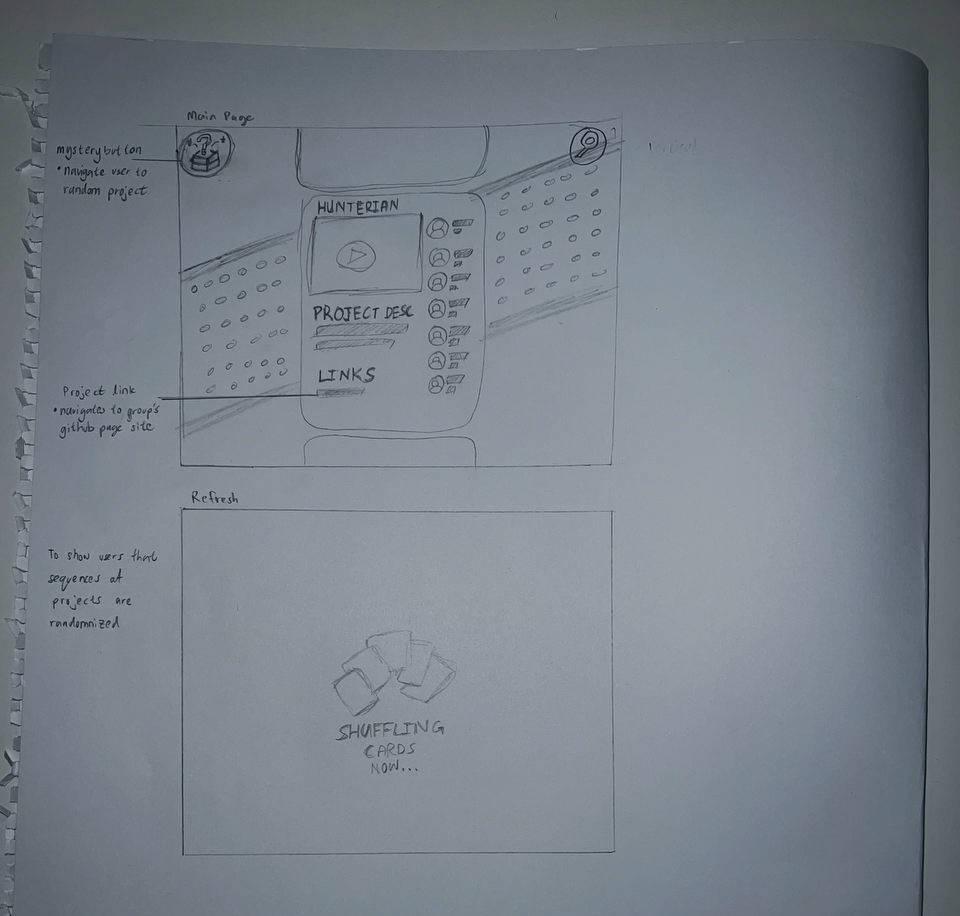 Main Page
mystery button
• Navigate user to
random project
?
HUNTERIAN
PROJECT DESC
LINKS
Project link
• navigates to group's
github page site
Refresh
To show users that
sequences of
projects are
randomnized
SHUFFLING
CARDS
NOW...